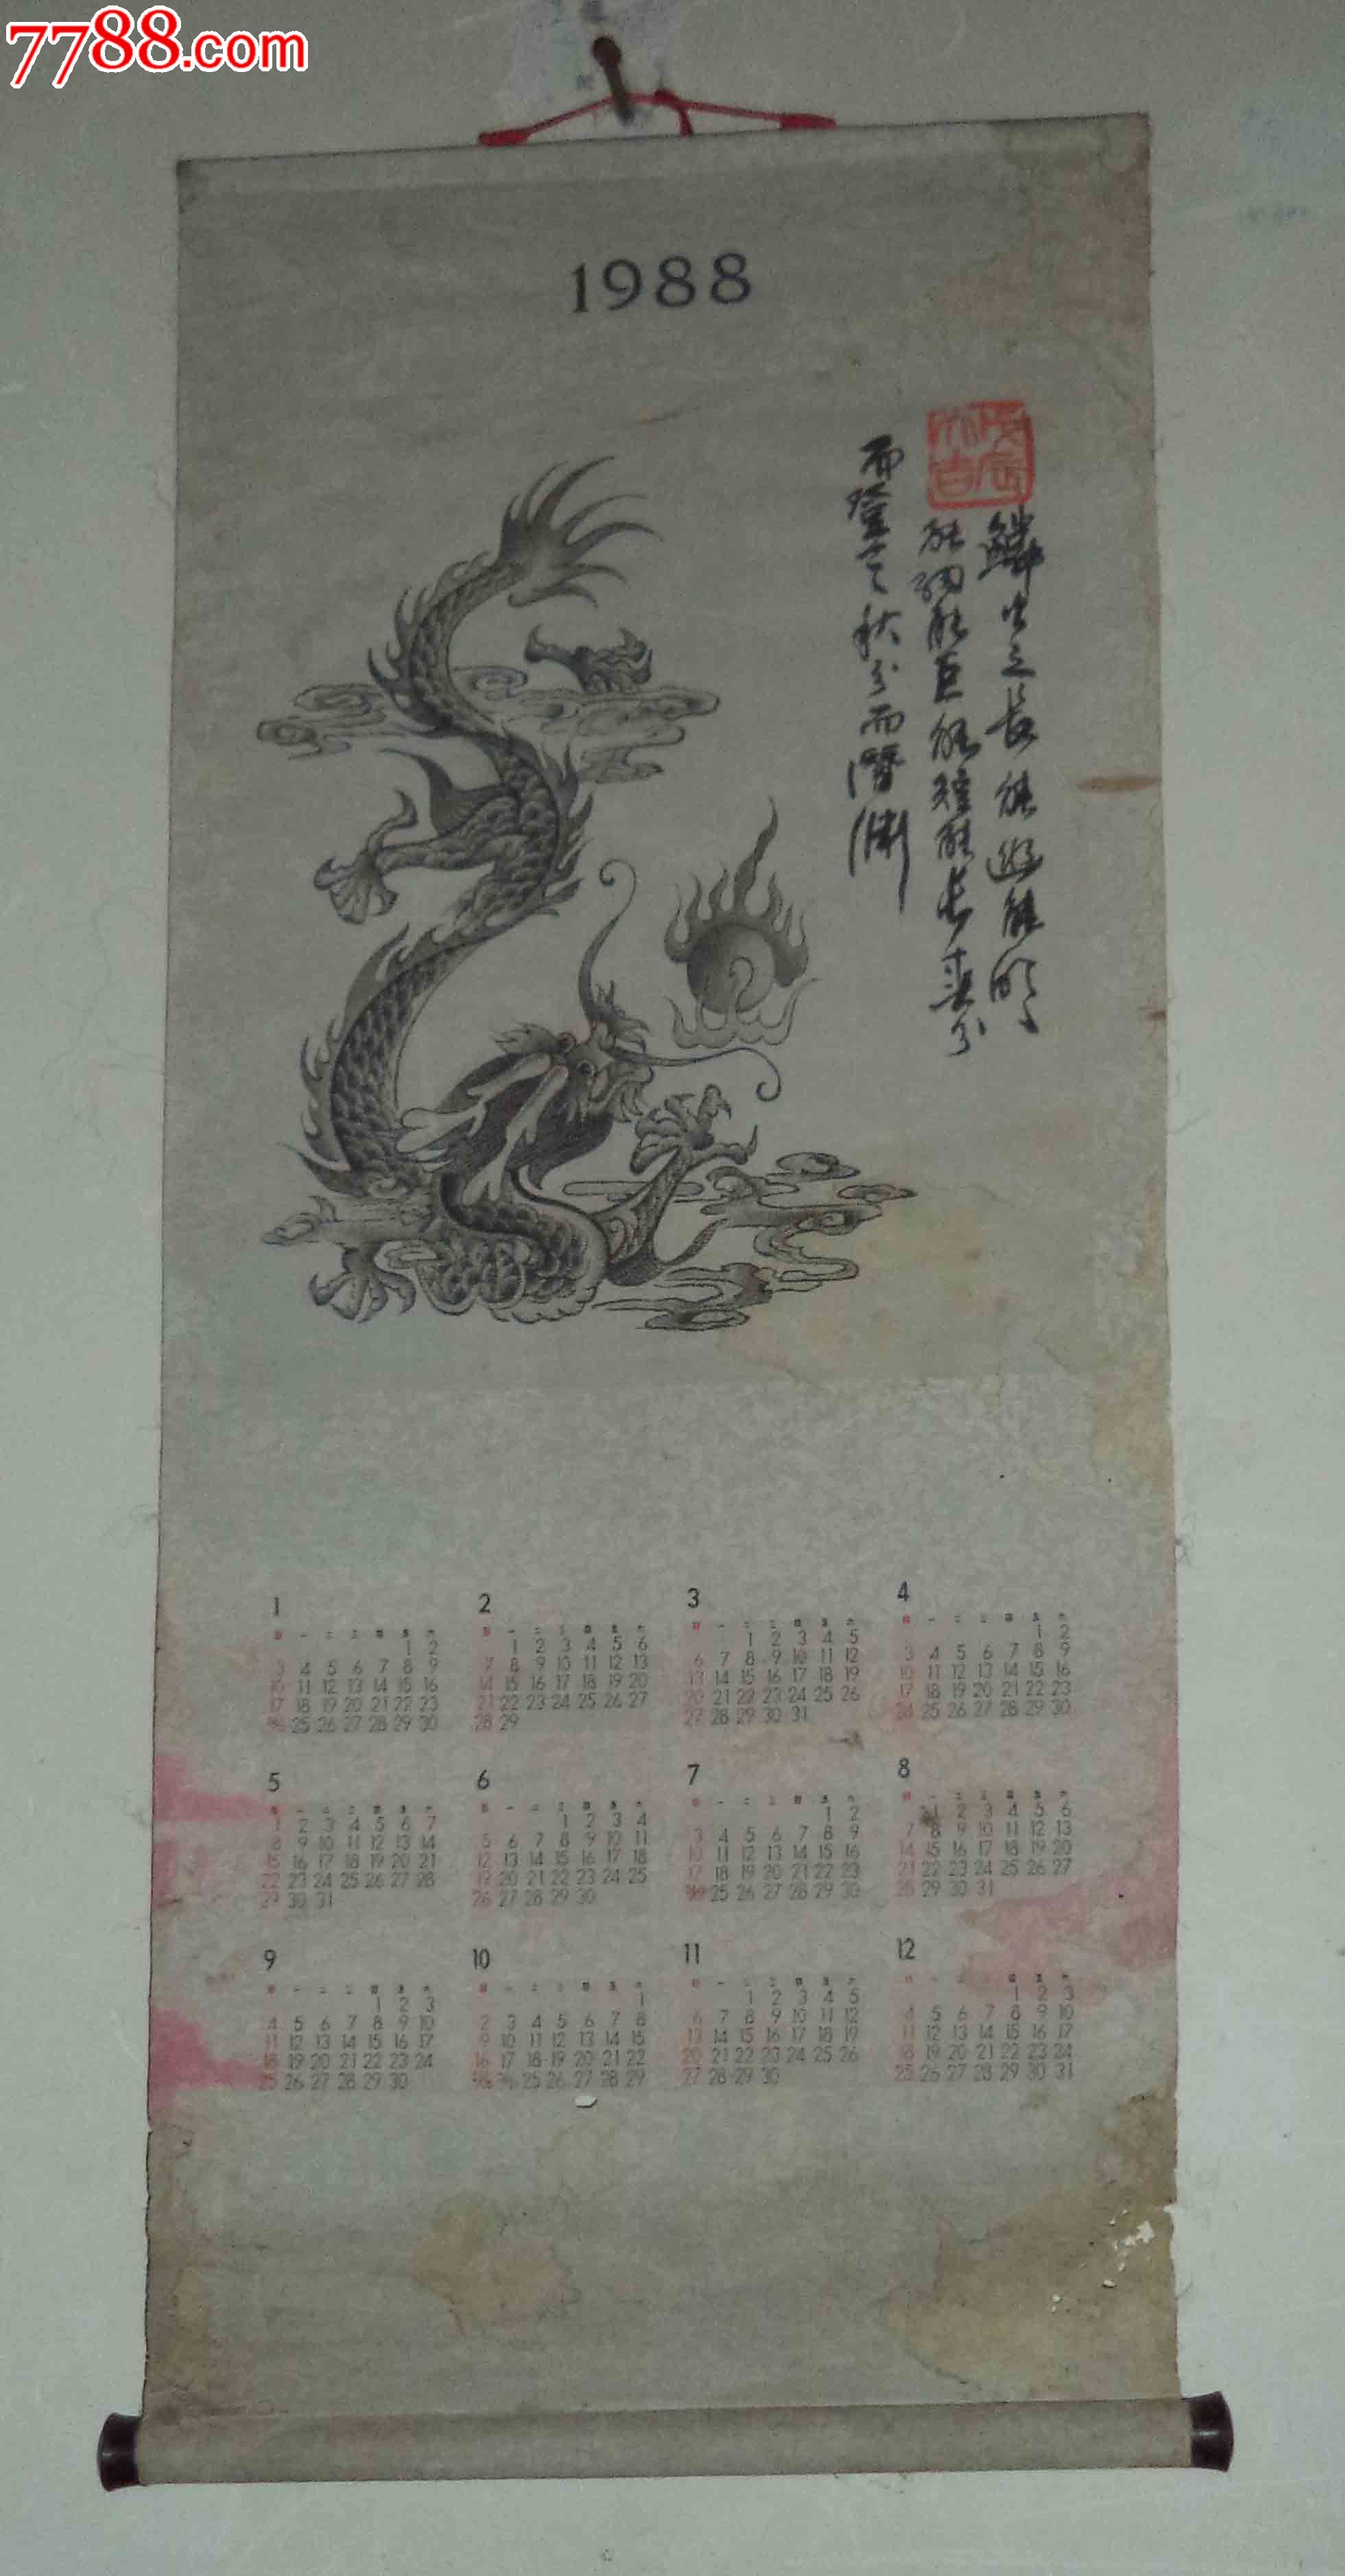 7788.com
1988
戊辰大吉
鱗虫之長能幽能明
能細能巨能短能长春分
而登天秋分而潛淵
1
日 一 二 三 四 五 六
1 2
3 4 5 6 7 8 9
10 11 12 13 14 15 16
17 18 19 20 21 22 23
24/31 25 26 27 28 29 30
2
日 一 二 三 四 五 六
1 2 3 4 5 6
7 8 9 10 11 12 13
14 15 16 17 18 19 20
21 22 23 24 25 26 27
28 29
3
日 一 二 三 四 五 六
1 2 3 4 5
6 7 8 9 10 11 12
13 14 15 16 17 18 19
20 21 22 23 24 25 26
27 28 29 30 31
4
日 一 二 三 四 五 六
1 2
3 4 5 6 7 8 9
10 11 12 13 14 15 16
17 18 19 20 21 22 23
24 25 26 27 28 29 30
5
日 一 二 三 四 五 六
1 2 3 4 5 6 7
8 9 10 11 12 13 14
15 16 17 18 19 20 21
22 23 24 25 26 27 28
29 30 31
6
日 一 二 三 四 五 六
1 2 3 4
5 6 7 8 9 10 11
12 13 14 15 16 17 18
19 20 21 22 23 24 25
26 27 28 29 30
7
日 一 二 三 四 五 六
1 2
3 4 5 6 7 8 9
10 11 12 13 14 15 16
17 18 19 20 21 22 23
24/31 25 26 27 28 29 30
8
日 一 二 三 四 五 六
1 2 3 4 5 6
7 8 9 10 11 12 13
14 15 16 17 18 19 20
21 22 23 24 25 26 27
28 29 30 31
9
日 一 二 三 四 五 六
1 2 3
4 5 6 7 8 9 10
11 12 13 14 15 16 17
18 19 20 21 22 23 24
25 26 27 28 29 30
10
日 一 二 三 四 五 六
1
2 3 4 5 6 7 8
9 10 11 12 13 14 15
16 17 18 19 20 21 22
23/30 24/31 25 26 27 28 29
11
日 一 二 三 四 五 六
1 2 3 4 5
6 7 8 9 10 11 12
13 14 15 16 17 18 19
20 21 22 23 24 25 26
27 28 29 30
12
日 一 二 三 四 五 六
1 2 3
4 5 6 7 8 9 10
11 12 13 14 15 16 17
18 19 20 21 22 23 24
25 26 27 28 29 30 31